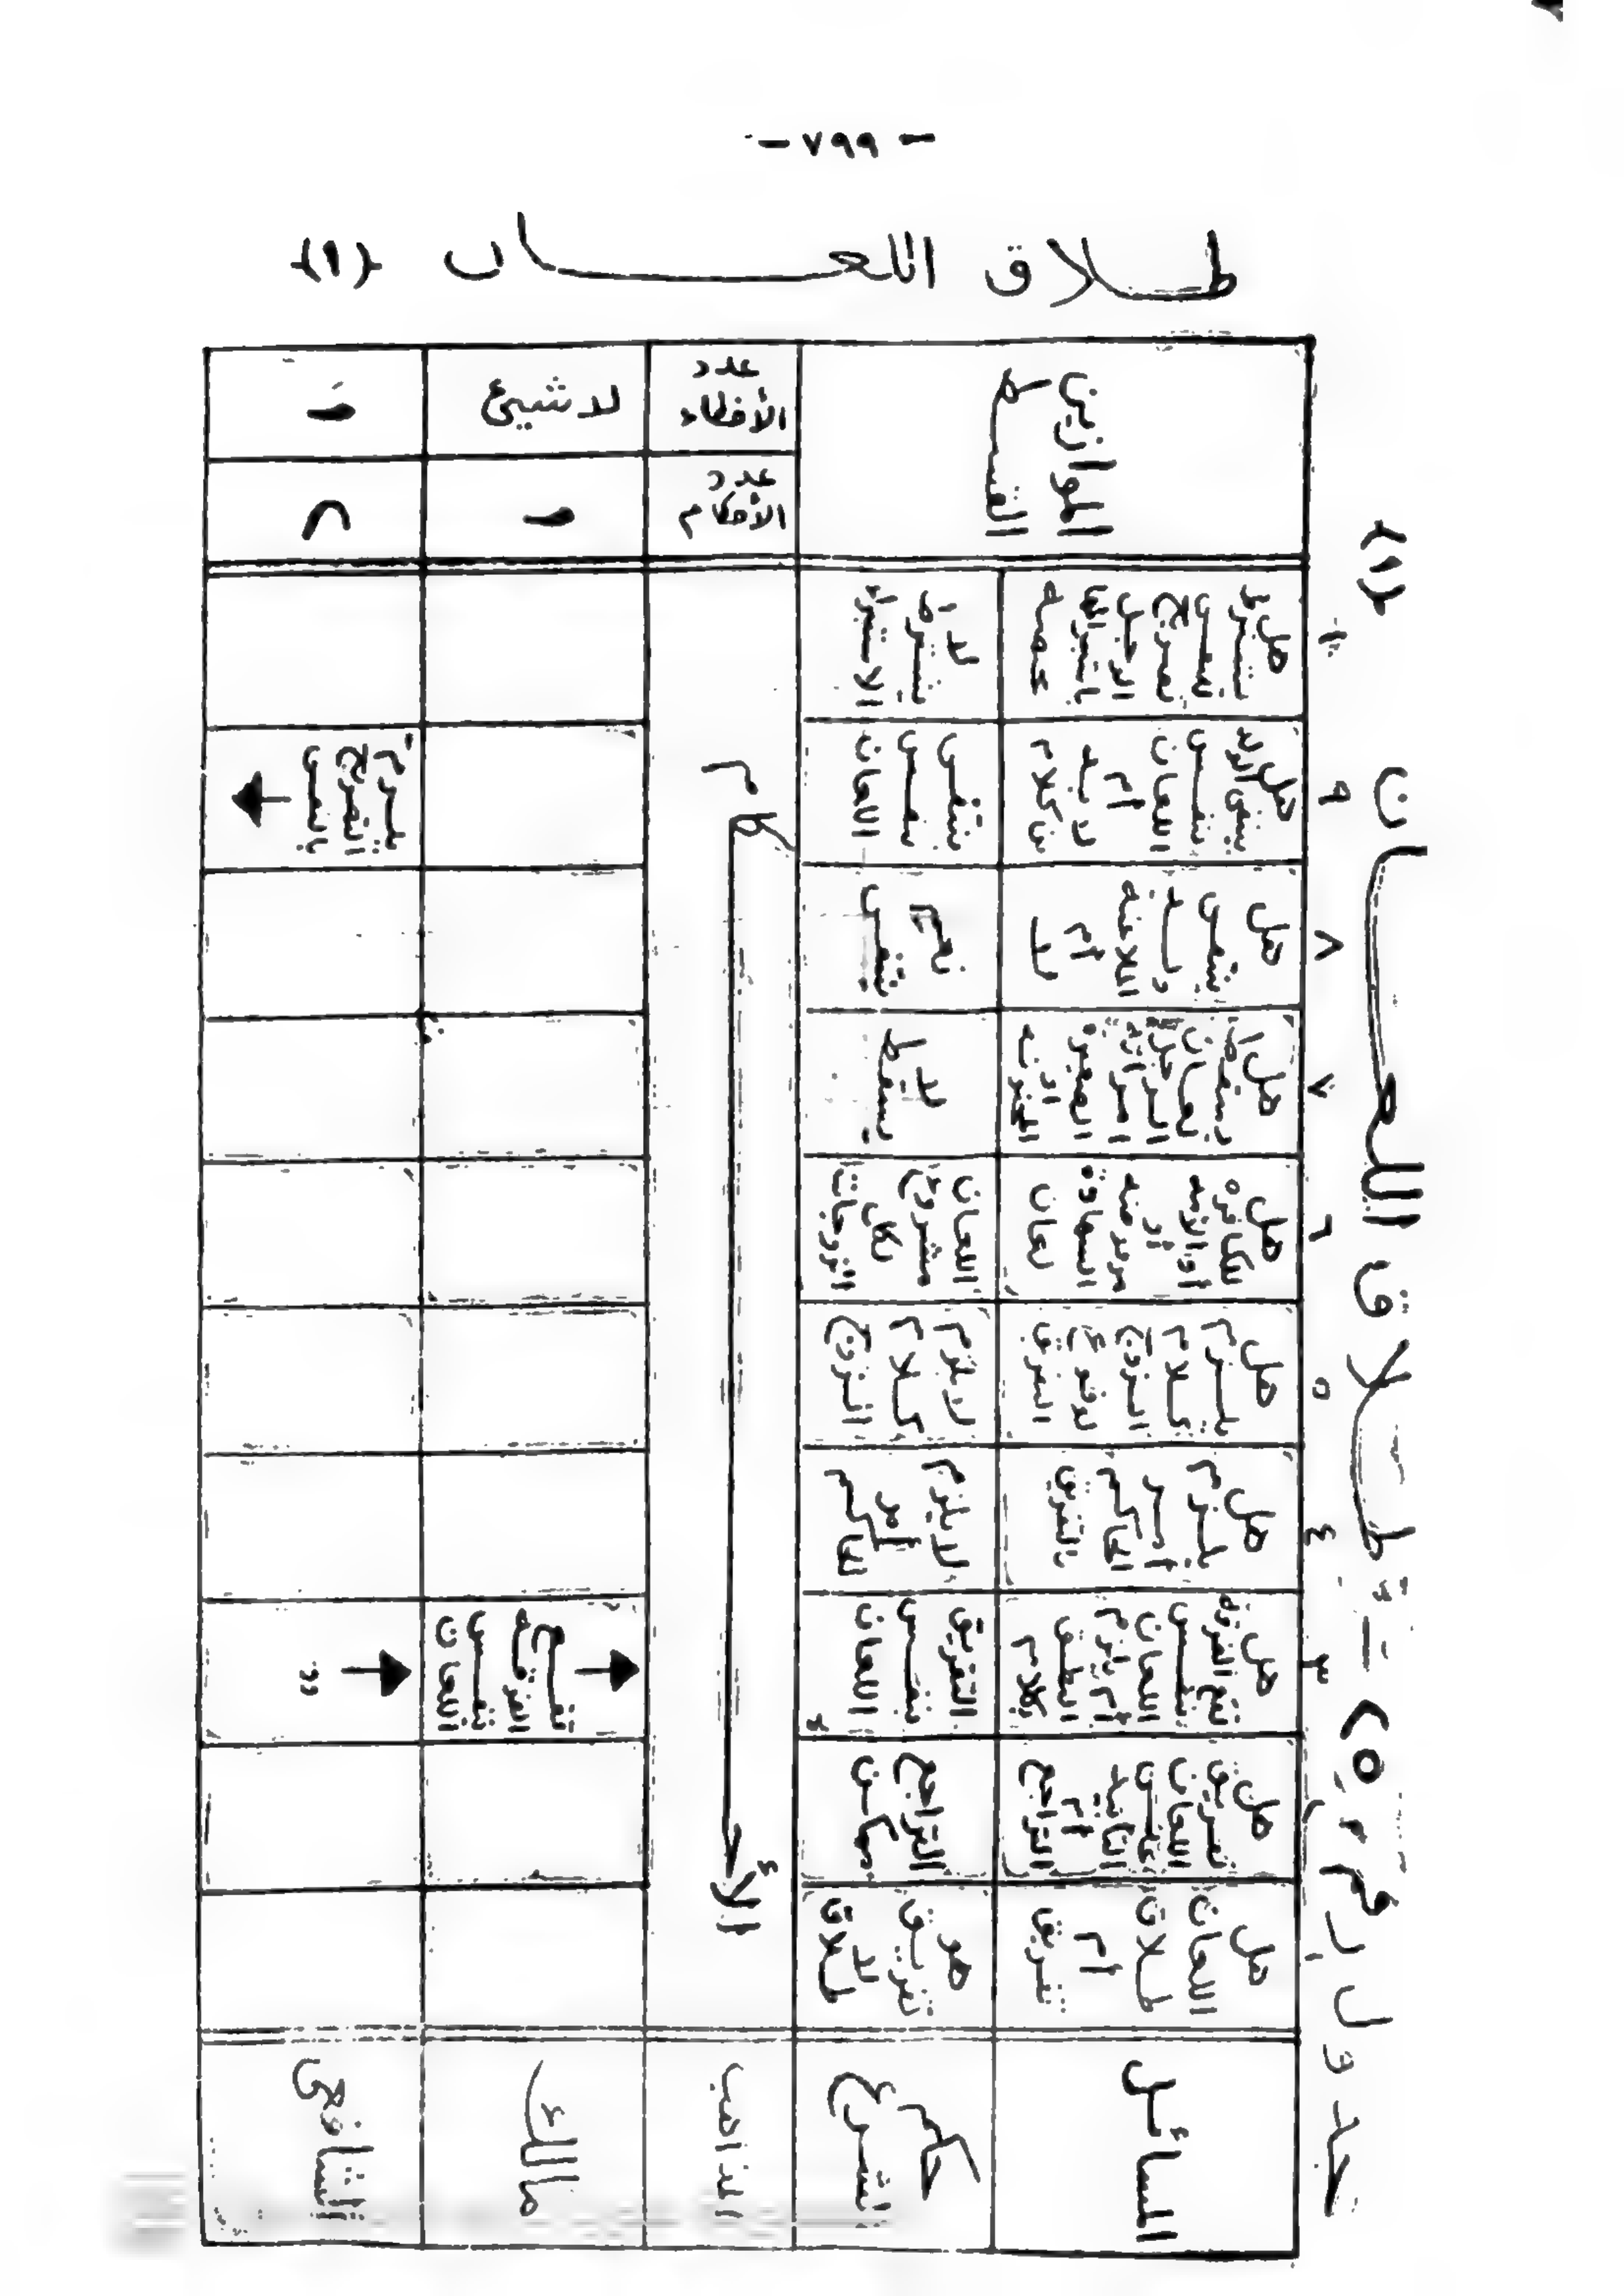 - ٧٩٩ -
طلاق اللعان (١)
جدول رقم ٢٥ - طلاق اللعان (١)
المسائل
هل اللعان طلاق ام تفريق
هل تفريق اللعان على التأبيد ام التراجع
هل تقع الفرقة بنفس اللعان ام يلزم النطق بكلام
هل يلزم أمر الحاكم بالتفريق
هل يلزم كلام الزوج لوقوع التفريق
هل للكافره أو الأمه أو مردودة الشهادة لعان
هل يسقط لعان الرجل امرأته الصغيرة او المجنونه
هل ينتفي ولد الملاعنه أم لا
هل ينتفي الولد بنفس اللعان أم لا بد من كلام
هل يشترط لنفي الرجل
١
٢
٣
٤
٥
٦
٧
٨
٩
١٠
الموازين القسط
حكم الشرع
هو تفريق لا طلاق
التراجع ممكن
التفريق بنفس اللعان
لا يلزم أمر للحاكم
لا يلزم كلام الزوج
اللعان مشروع لكل الزوجات
لا يسقط
نعم ينتفي
ينتفي بنفس اللعان
لا يشترط الاستبراء
المذاهب
الأحكام
عدد الأحكام
عدد الأخطاء
مالك
تقع الفرقه بنفس اللعان
١
لا شيئ
الشافعي
"
يلزم التصريح بالنفي
٢
١